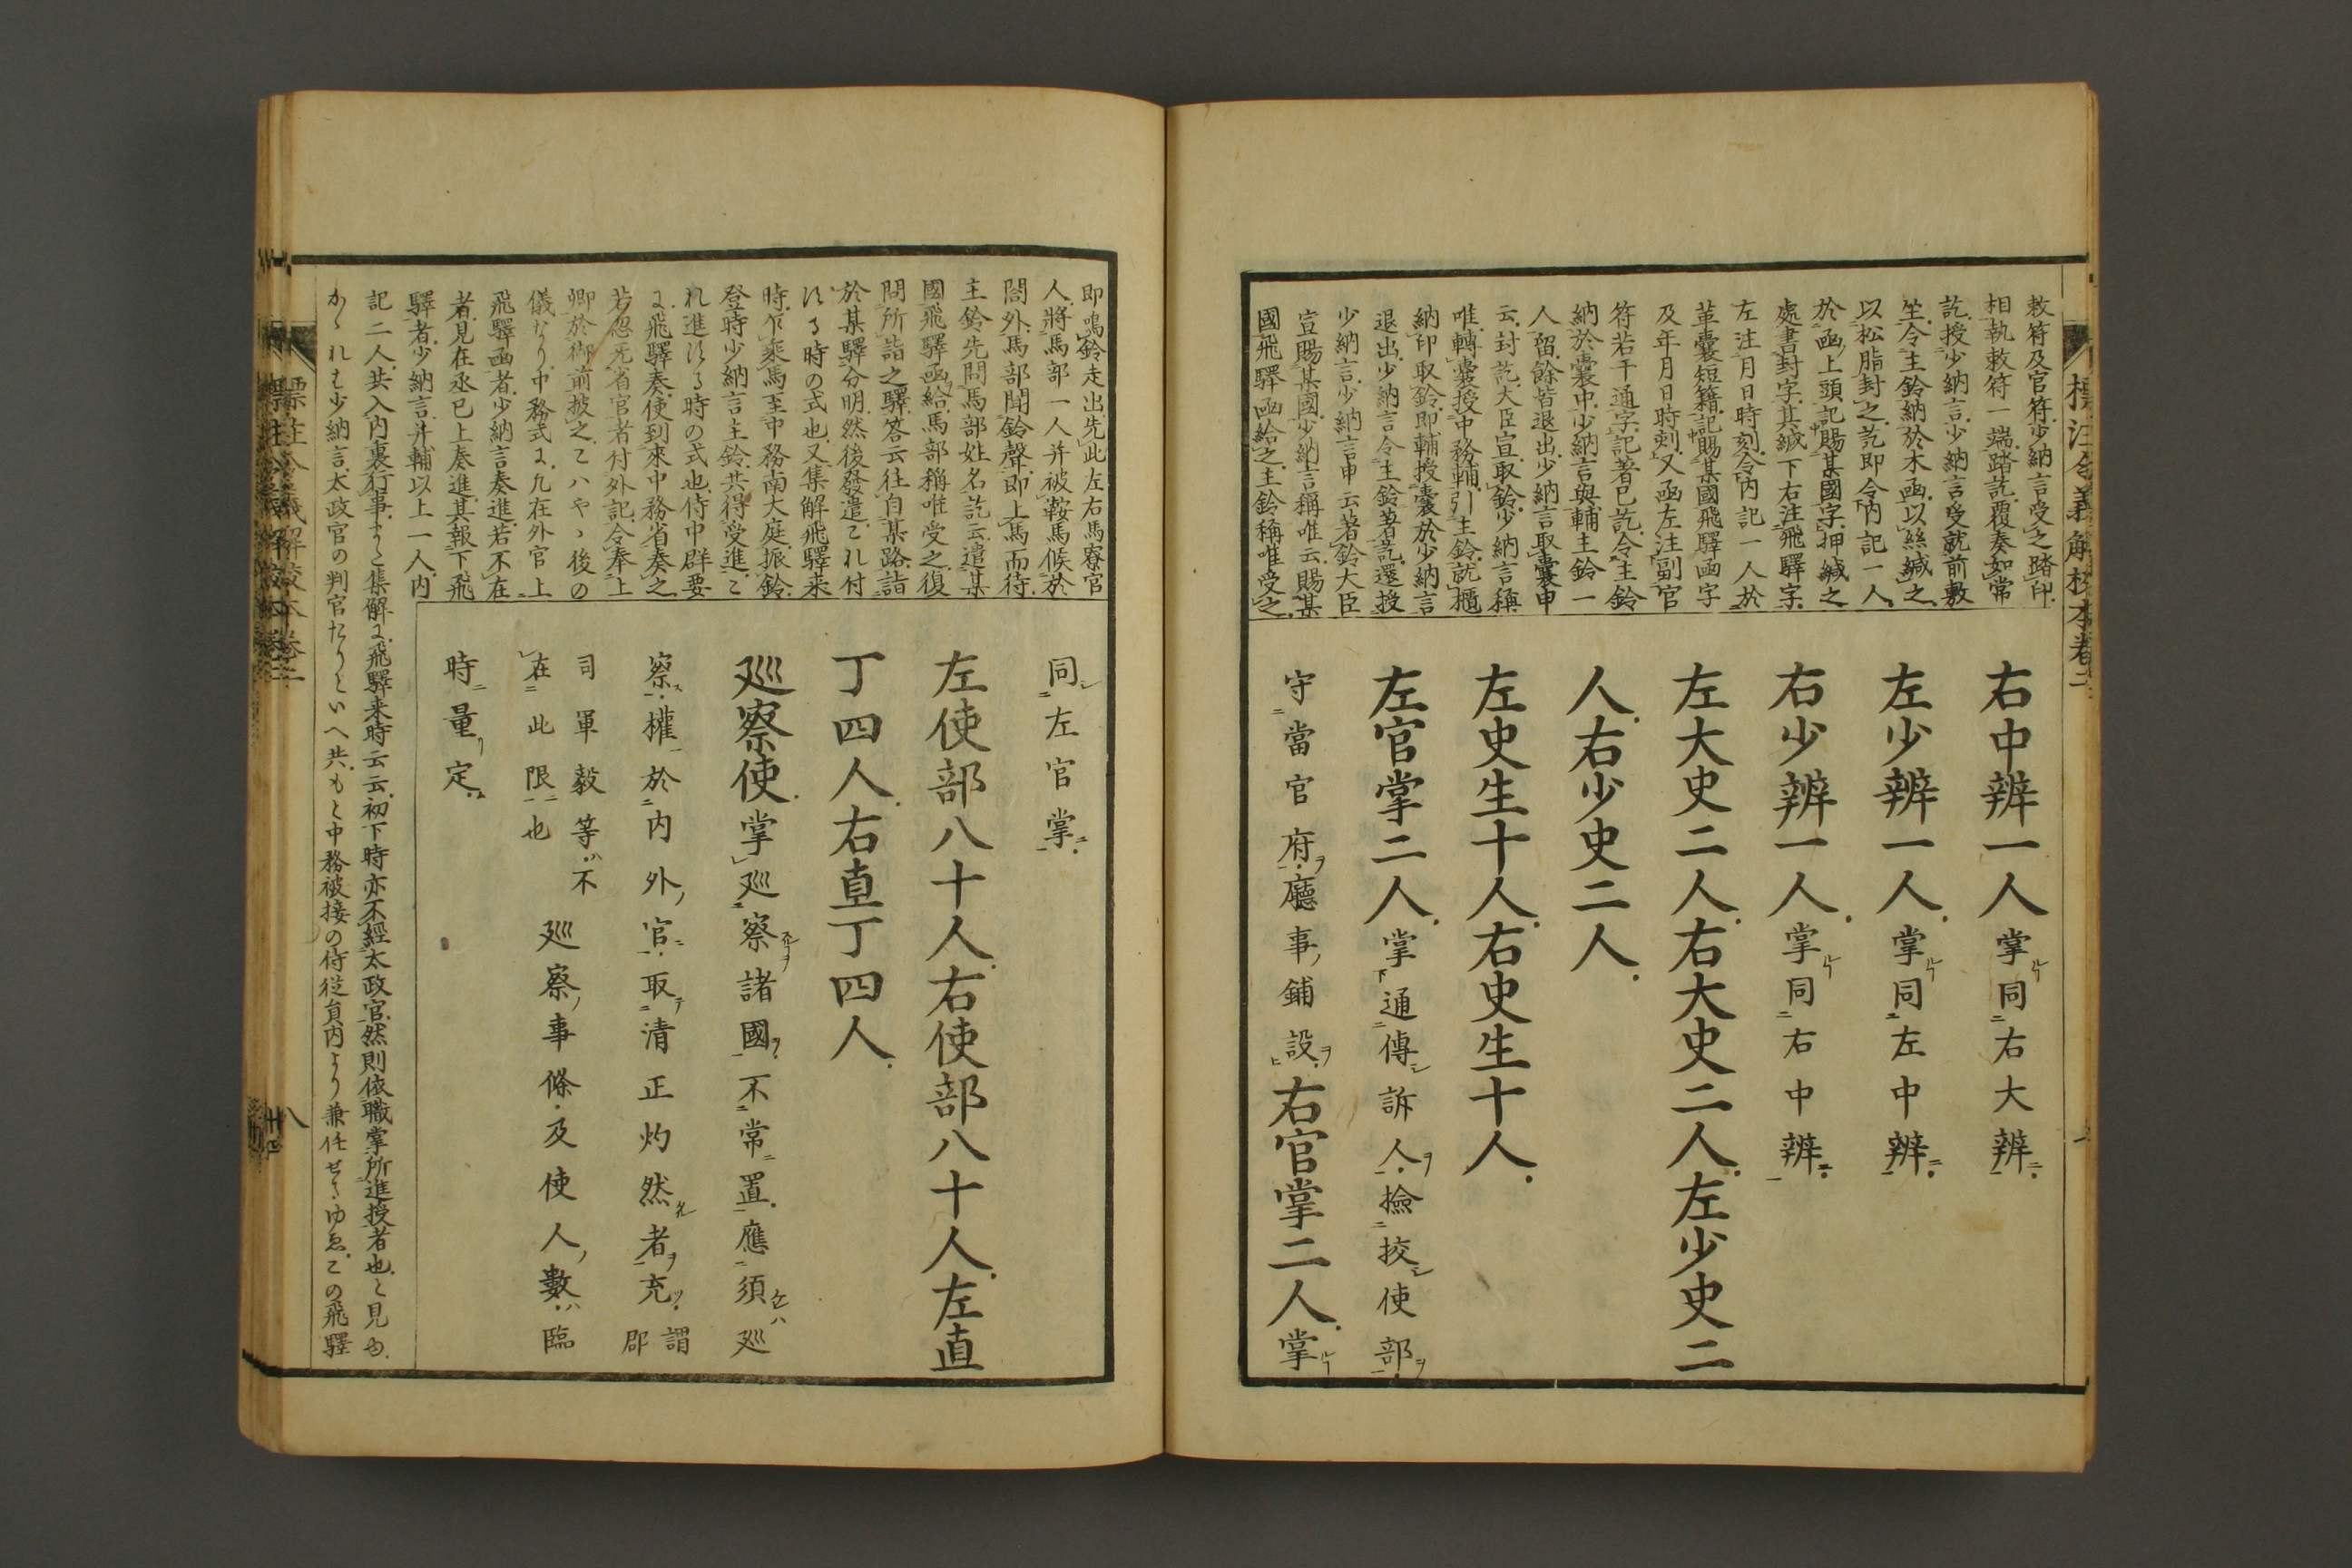 標注令義解校本卷二
敕符及官符少納言受之踏印
相執敕符一端踏訖覆奏如常
訖授少納言少納言受就前敷
坐令主鈴納於木函以絲緘之
以松脂封之訖即令内記一人
於函上頭記賜某國字押緘之
處書封字其緘下右注飛驛字
左注月日時刻令内記一人於
革囊短籍記賜某國飛驛函字
及年月日時刻又函左注副官
符若干通字記著已訖令主鈴
納於囊中少納言與輔主鈴一
人留餘皆退出少納言取囊申
云封訖大臣宣取鈴少納言稱
唯轉囊授中務輔引主鈴就櫃
納印取鈴即輔授囊於少納言
退出少納言令主鈴著訖還授
少納言少納言申云著鈴大臣
宣賜某國少納言稱唯云賜某
國飛驛函給之主鈴稱唯受之
右中辨一人掌同右大辨
左少辨一人掌同左中辨
右少辨一人掌同右中辨
左大史二人右大史二人左少史二
人右少史二人
左史生十人右史生十人
左官掌二人掌通傳訴人撿挍使部
守當官府廳事鋪設右官掌二人掌
即鳴鈴走出先此左右馬寮官
人將馬部一人并被鞍馬候於
閤外馬部聞鈴聲即上馬而待
主鈴先問馬部姓名訖云遣某
國飛驛函給馬部稱唯受之復
問所詣之驛答云往自某路詣
於某驛分明然後發遣これ付
する時の式也又集解飛驛来
時乍乘馬至中務南大庭振鈴
登時少納言主鈴共得受進こ
れ進する時の式也侍中群要
に飛驛奏使到來中務省奏之
若忽无省官者付外記令奉上
卿於御前披之こハやゝ後の
儀なり中務式に凡在外官上
飛驛函者少納言奏進若不在
者見在丞已上奏進其報下飛
驛者少納言并輔以上一人内
記二人共入内裏行事また集解に飛驛来時云云初下時亦不經太政官然則依職掌所進授者也と見ゆ
かゝれは少納言太政官の判官たりといへ共もと中務被接の侍從員内より兼任せらゆゑこの飛驛
同左官掌
左使部八十人右使部八十人左直
丁四人右直丁四人
巡察使掌巡察諸國不常置應須巡
察權於内外官取清正灼然者充謂郡
司軍毅等不在此限也巡察事條及使人數臨
時量定
標注令義解校本卷二
八